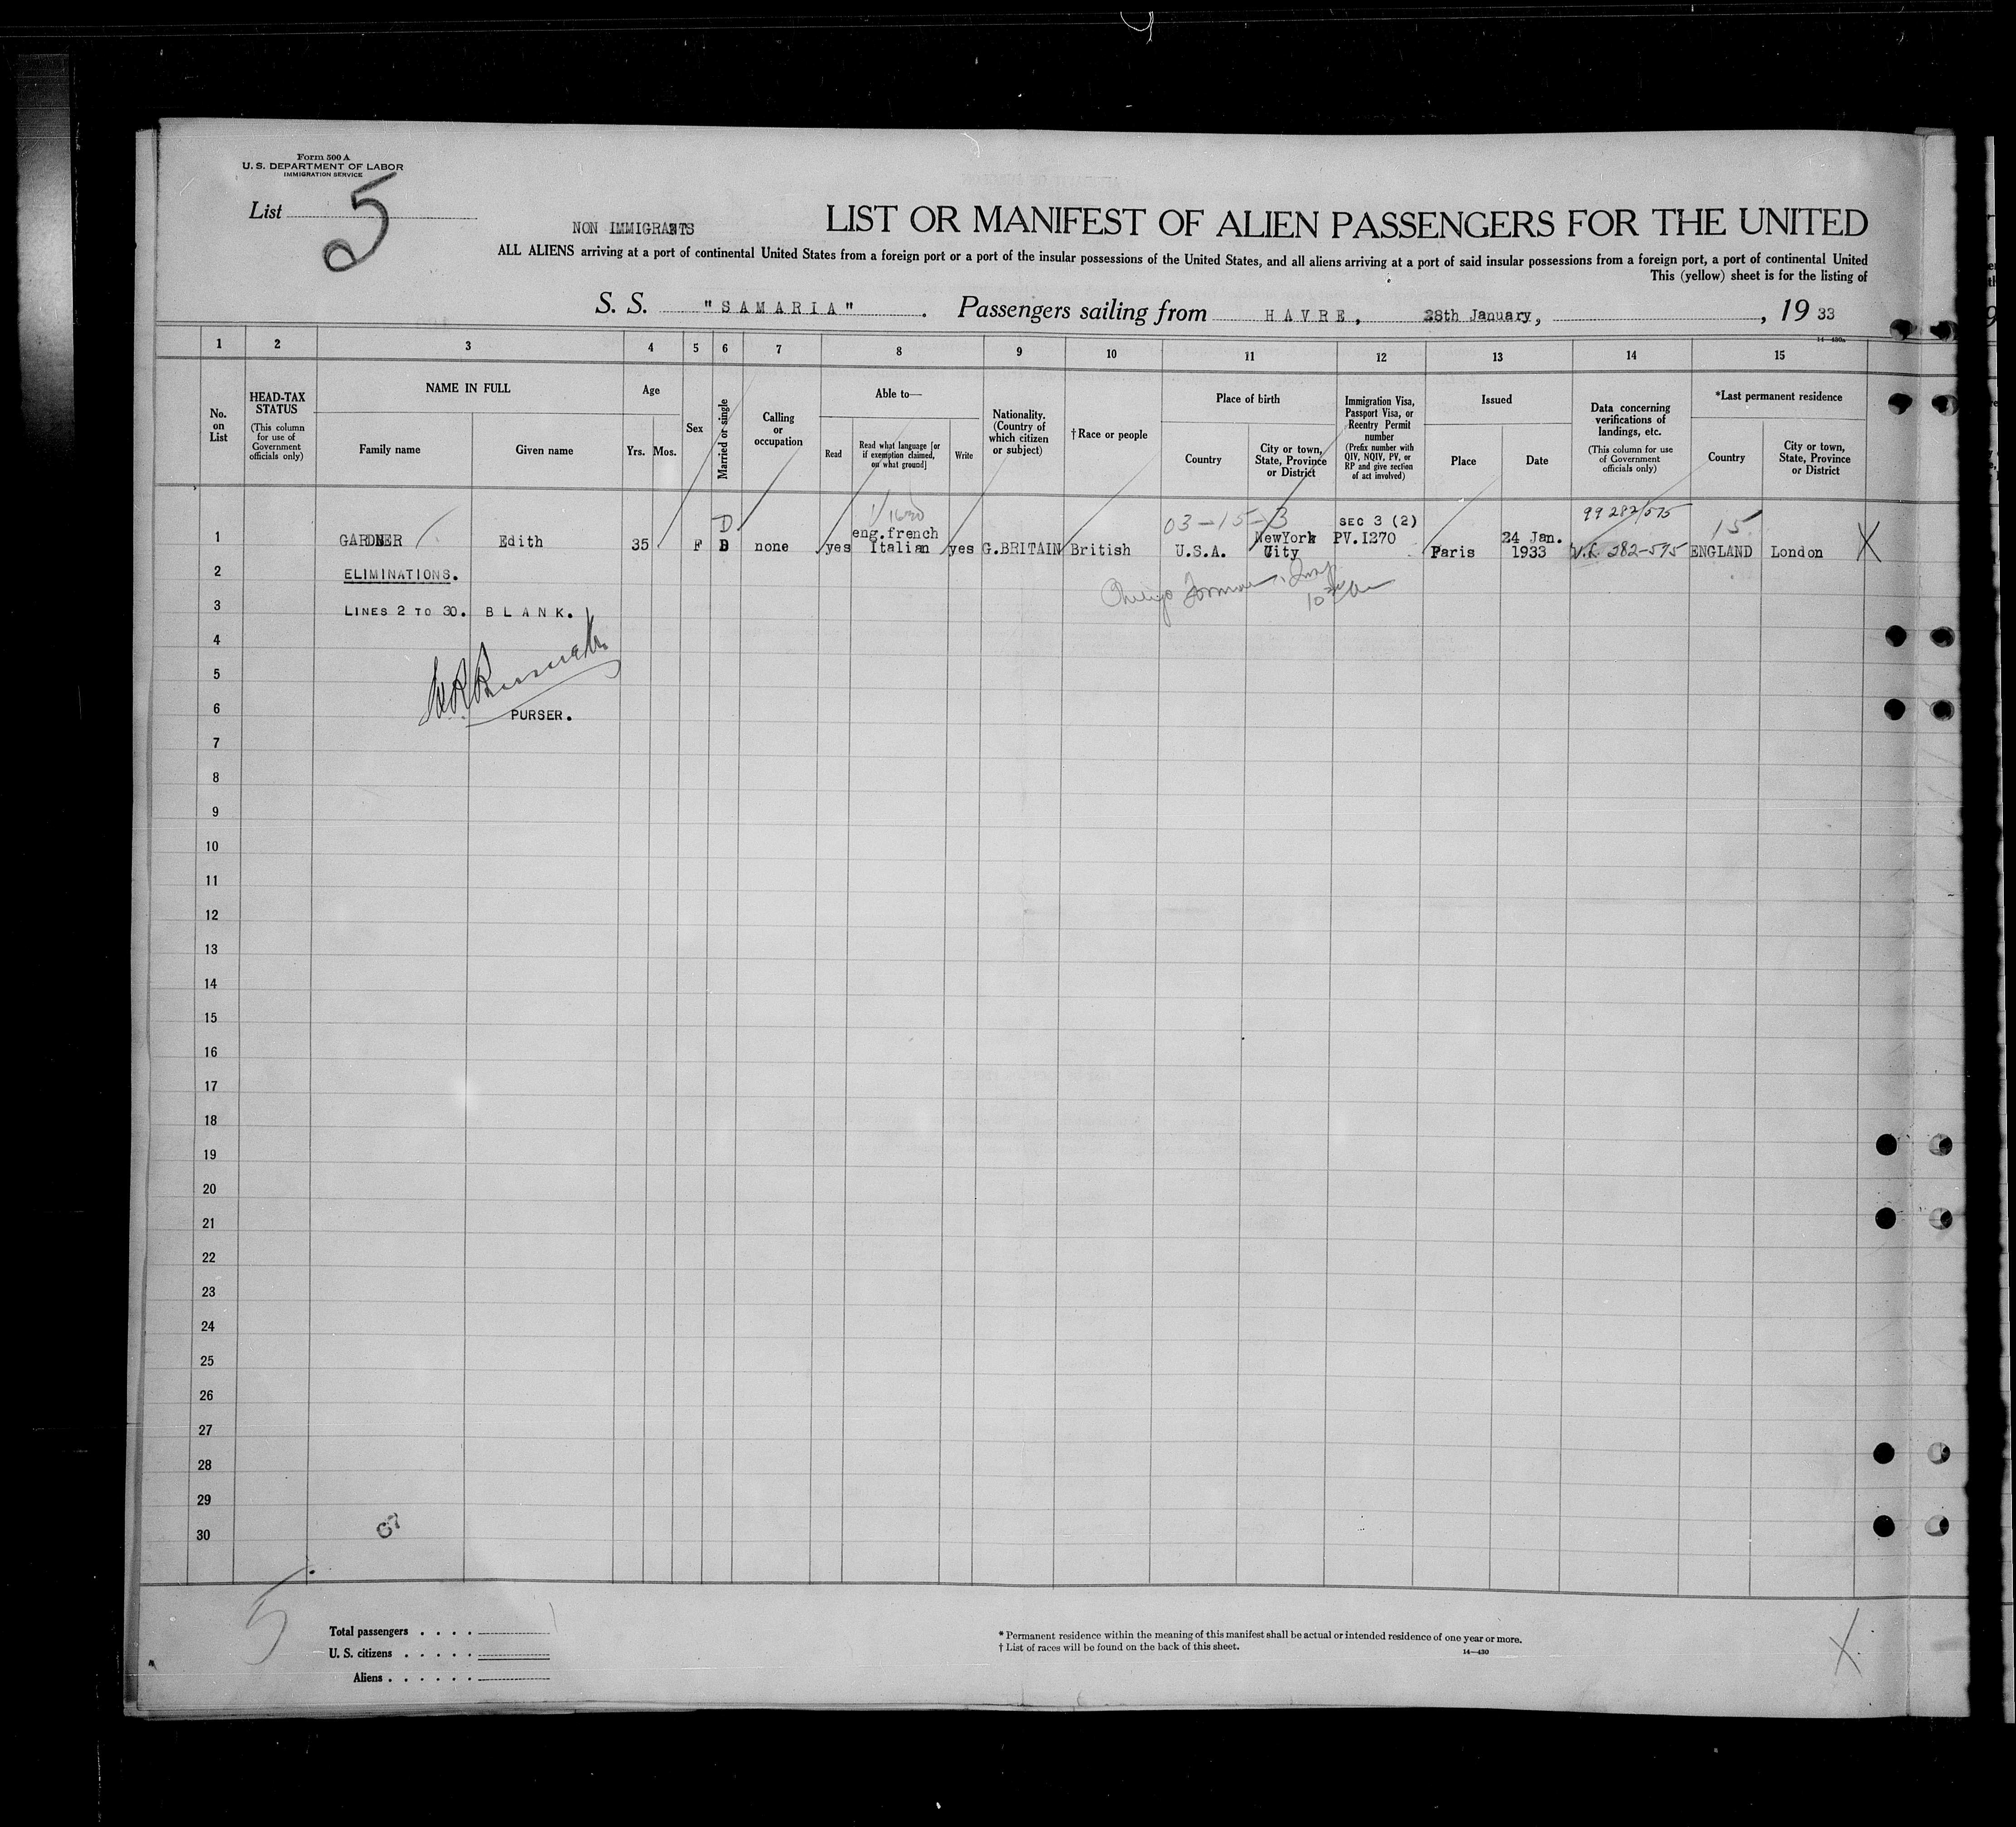 Form 500 A
U. S. DEPARTMENT OF LABOR
IMMIGRATION SERVICE
List 5
NON IMMIGRANTS
LIST OR MANIFEST OF ALIEN PASSENGERS FOR THE UNITED
ALL ALIENS arriving at a port of continental United States from a foreign port or a port of the insular possessions of the United States, and all aliens arriving at a port of said insular possessions from a foreign port, a port of continental United
This (yellow) sheet is for the listing of
S. S. "SAMARIA". Passengers sailing from HAVRE, 28th January, , 19 33
14—430a
1 2 3 4 5 6 7 8 9 10 11 12 13 14 15
No. on List
HEAD-TAX STATUS
(This column for use of Government officials only)
NAME IN FULL
Family name
Given name
Age
Yrs. Mos.
Sex
Married or single
Calling or occupation
Able to—
Read
Read what language [or if exemption claimed, on what ground]
Write
Nationality. (Country of which citizen or subject)
† Race or people
Place of birth
Country
City or town, State, Province or District
Immigration Visa, Passport Visa, or Reentry Permit number
(Prefix number with QIV, NQIV, PV, or RP and give section of act involved)
Issued
Place
Date
Data concerning verifications of landings, etc.
(This column for use of Government officials only)
*Last permanent residence
Country
City or town, State, Province or District
03-15-3
SEC 3 (2)
99 282/575
15
D
1 GARDNER Edith 35 F D none yes eng.french Italian yes G.BRITAIN British U.S.A. NewYork City PV.1270 Paris 24 Jan. 1933 V.L. 282-595 ENGLAND London X
2 ELIMINATIONS.
3 LINES 2 TO 30. BLANK.
4
5
6 PURSER.
7
8
9
10
11
12
13
14
15
16
17
18
19
20
21
22
23
24
25
26
27
28
29
30
5
Total passengers
U. S. citizens
Aliens
* Permanent residence within the meaning of this manifest shall be actual or intended residence of one year or more.
† List of races will be found on the back of this sheet.
14—430
X